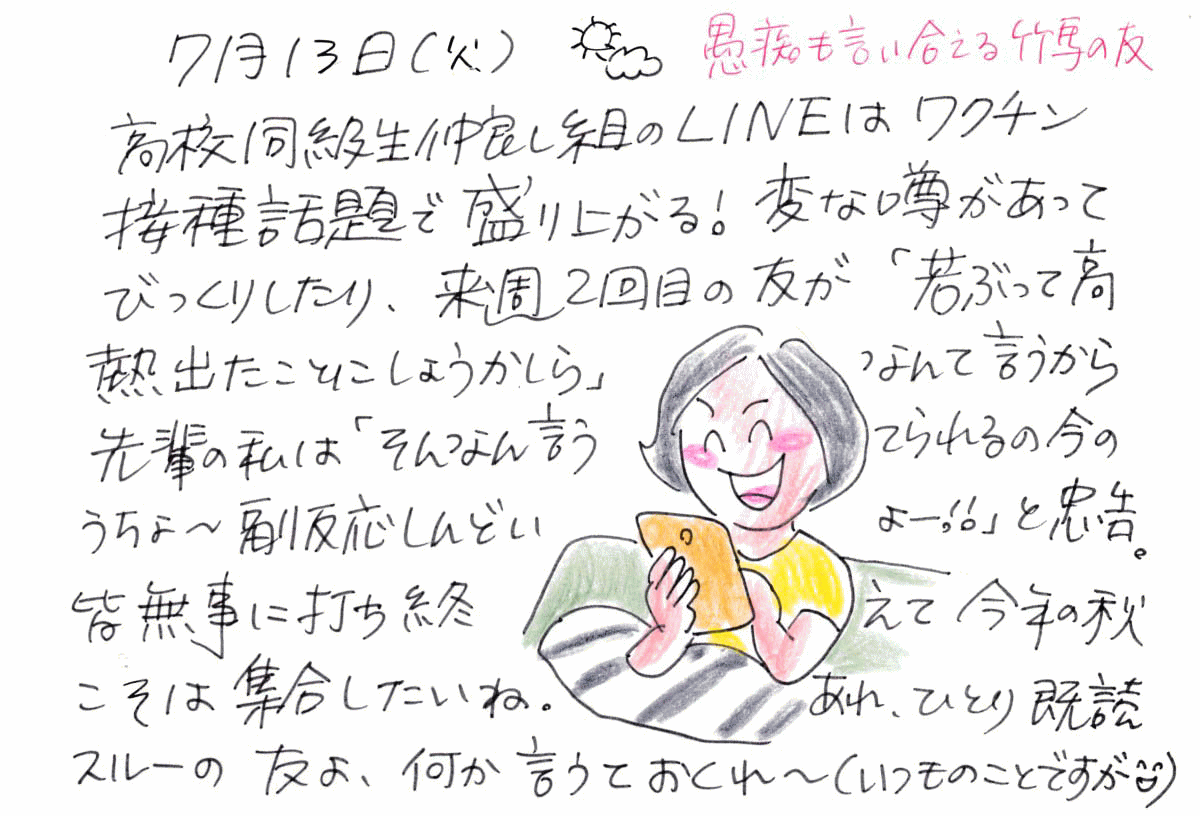 7月13日(火)
愚痴も言い合える竹馬の友
高校同級生仲良し組のLINEは ワクチン
接種話題で盛り上がる! 変な噂があって
びっくりしたり、来週2回目の友が「若ぶって高
熱出たことにしょうかしら」なんて言うから
先輩の私は「そんなん言うてられるの今の
うちよ〜副反応しんどいよー!!」と忠告。
皆無事に打ち終えて今年の秋
こそは集合したいね。あれ、ひとり既読
スルーの友よ、何か言うておくれ〜(いつものことですが)